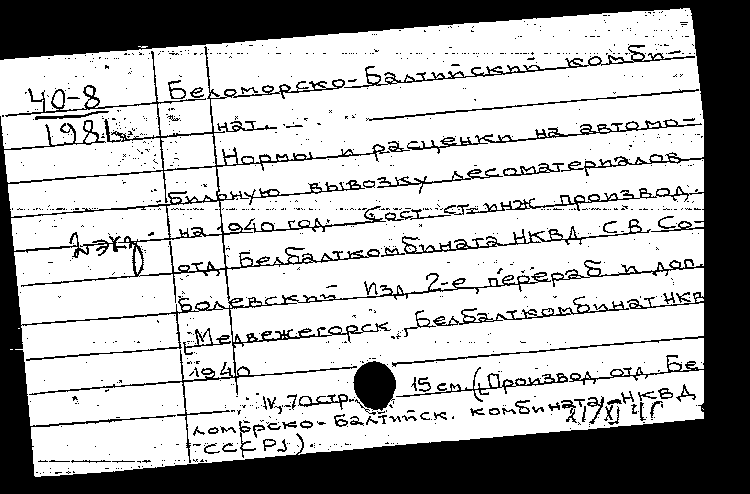 40-8
1981
2 экз.
Беломорско-Балтийский комби-
нат.
Нормы и расценки на автомо-
бильную вывозку лесоматериалов
на 1940 год. Сост. ст. инж. производ.
отд. Белбалткомбината НКВД С.В. Со-
болевский Изд. 2-е, перераб. и доп.
[Медвежегорск, Белбалткомбинат НКВ
1940
IV, 70 стр. 15 см. ([Производ. отд. Бе
ломорско-Балтийск. комбината НКВД
СССР]).